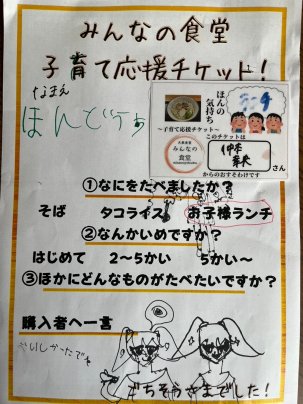 みんなの食堂
子育て応援チケット!
なまえ
ほんの気持ち
ランチ
~子育て応援チケット~
このチケットは
みんなの食堂
さん
からのおすそわけです
①なにをたべましたか?
そば タコライス お子様ランチ
②なんかいめですか?
はじめて 2~5かい 5かい~
③ほかにどんなものがたべたいですか?
購入者へ一言
おいしかったです
ごちそうさまでした!